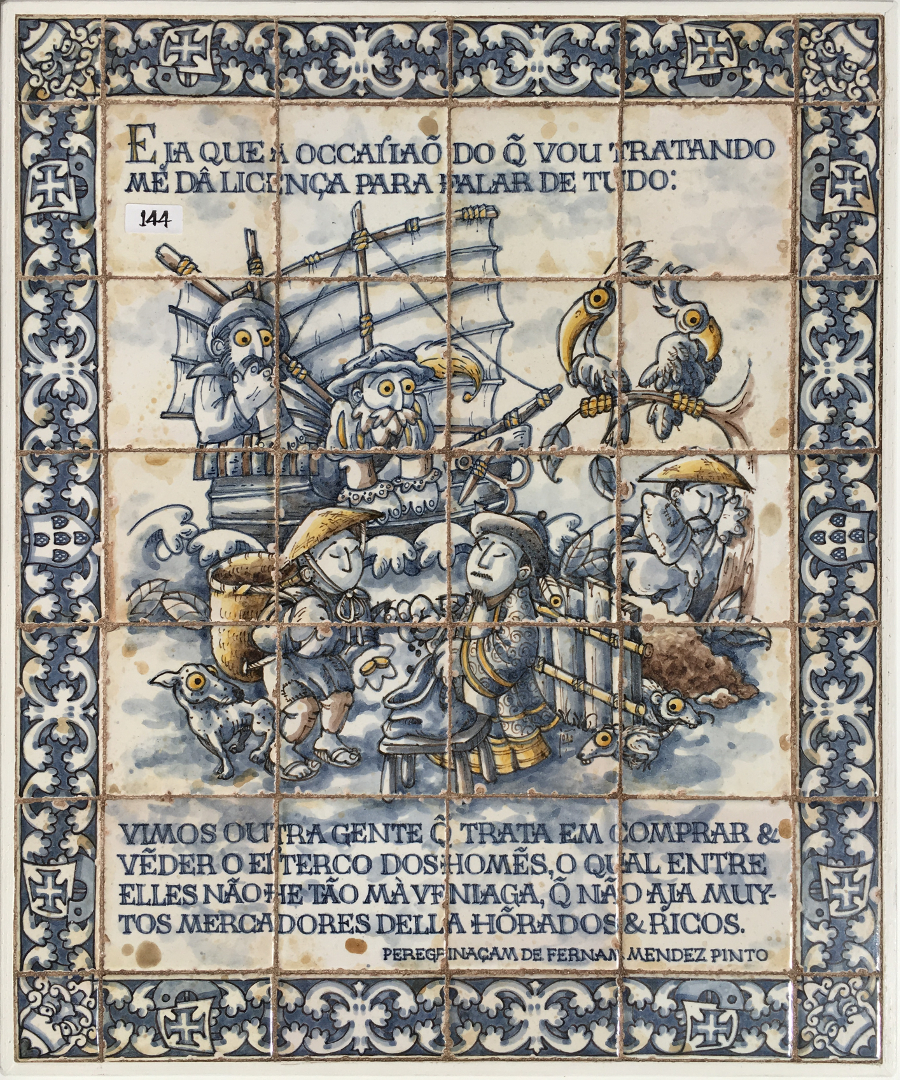 E JA QUE A OCCAſIAÕ DO Q̃ VOU TRATANDO
ME DÂ LICENÇA PARA FALAR DE TUDO:
144
VIMOS OUTRA GENTE Q̃ TRATA EM COMPRAR &
VẼDER O EſTERCO DOS HOMẼS, O QUAL ENTRE
ELLES NÃO HE TÃO MÀ VENIAGA, Q̃ NÃO AJA MUY-
TOS MERCADORES DELLA HÕRADOS & RICOS.
PEREGRINAÇAM DE FERNAM MENDEZ PINTO